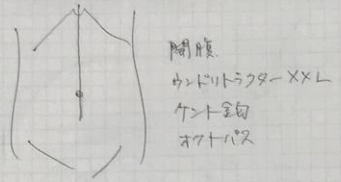 開腹
ウンドリトラクターXXL
ケント鉤
オクトパス